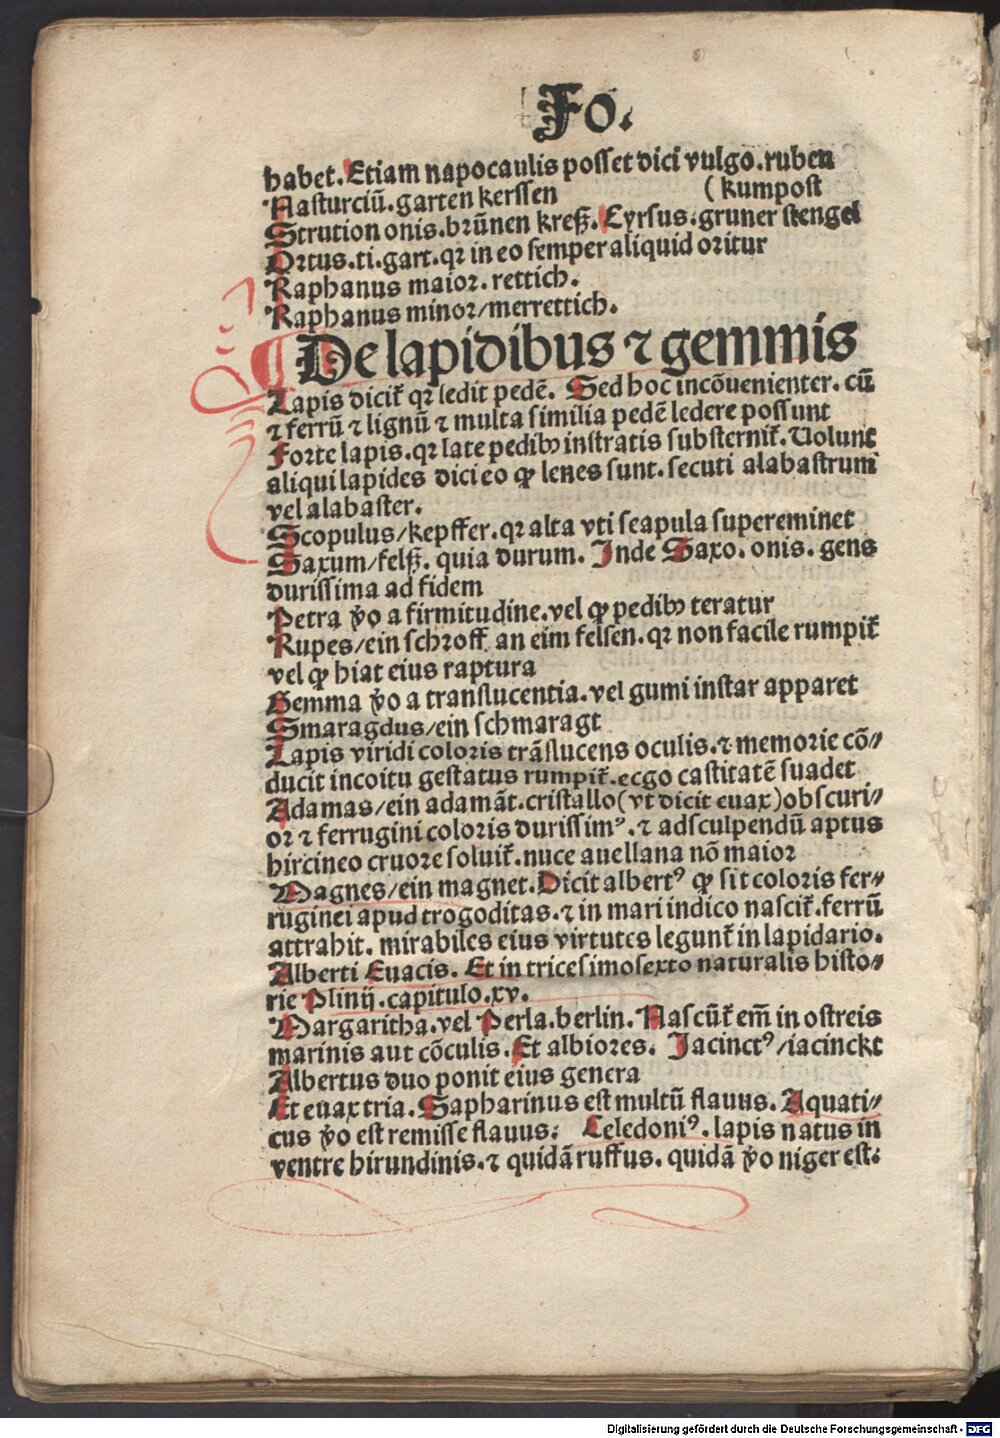 Fo.
habet. Etiam napocaulis posset dici vulgo. ruben
Nasturciū. garten kerssen (kumpost
Strution onis. brūnen kreß. Cyrsus. gruner stengel
Ortus. ti. gart. qꝛ in eo semper aliquid oritur
Raphanus maior. rettich.
Raphanus minor/merrettich.
De lapidibus ⁊ gemmis
Lapis dicit̄ qꝛ ledit pedē. Sed hoc incōuenienter. cū
⁊ ferrū ⁊ lignū ⁊ multa similia pedē ledere possunt
Forte lapis. qꝛ late pedibꝰ instratis substernit̄. Uolunt
aliqui lapides dici eo ꝙ lenes sunt. secuti alabastrum
vel alabaster.
Scopulus/kepffer. qꝛ alta vti scapula supereminet
Saxum/felß. quia durum. Inde Saxo. onis. gens
durissima ad fidem
Petra ꝟo a firmitudine. vel ꝙ pedibꝰ teratur
Rupes/ein schroff an eim felsen. qꝛ non facile rumpit̄
vel ꝙ hiat eius raptura
Gemma ꝟo a translucentia. vel gumi instar apparet
Smaragdus/ein schmaragt
Lapis viridi coloris trāslucens oculis. ⁊ memorie cō⸗
ducit in coitu gestatus rumpit̄. ecgo castitatē suadet
Adamas/ein adamāt. cristallo (vt dicit euax) obscuri⸗
or ⁊ ferrugini coloris durissimꝰ. ⁊ ad sculpendū aptus
hircineo cruore soluit̄. nuce auellana nō maior
Magnes/ein magnet. Dicit albertꝰ ꝙ sit coloris fer⸗
ruginei apud trogoditas. ⁊ in mari indico nascit̄. ferrū
attrahit. mirabiles eius virtutes legunt̄ in lapidario.
Alberti Euacis. Et in tricesimosexto naturalis histo⸗
rie Plinij. capitulo. xv.
Margaritha. vel Perla. berlin. Nascūt̄ em̄ in ostreis
marinis aut cōculis. Et albiores. Jacinctꝰ/iacinckt
Albertus duo ponit eius genera
Et euax tria. Sapharinus est multū flauus. Aquati⸗
cus ꝟo est remisse flauus: Celedoniꝰ. lapis natus in
ventre hirundinis. ⁊ quidā ruffus. quidā ꝟo niger est:
Digitalisierung gefördert durch die Deutsche Forschungsgemeinschaft - DFG